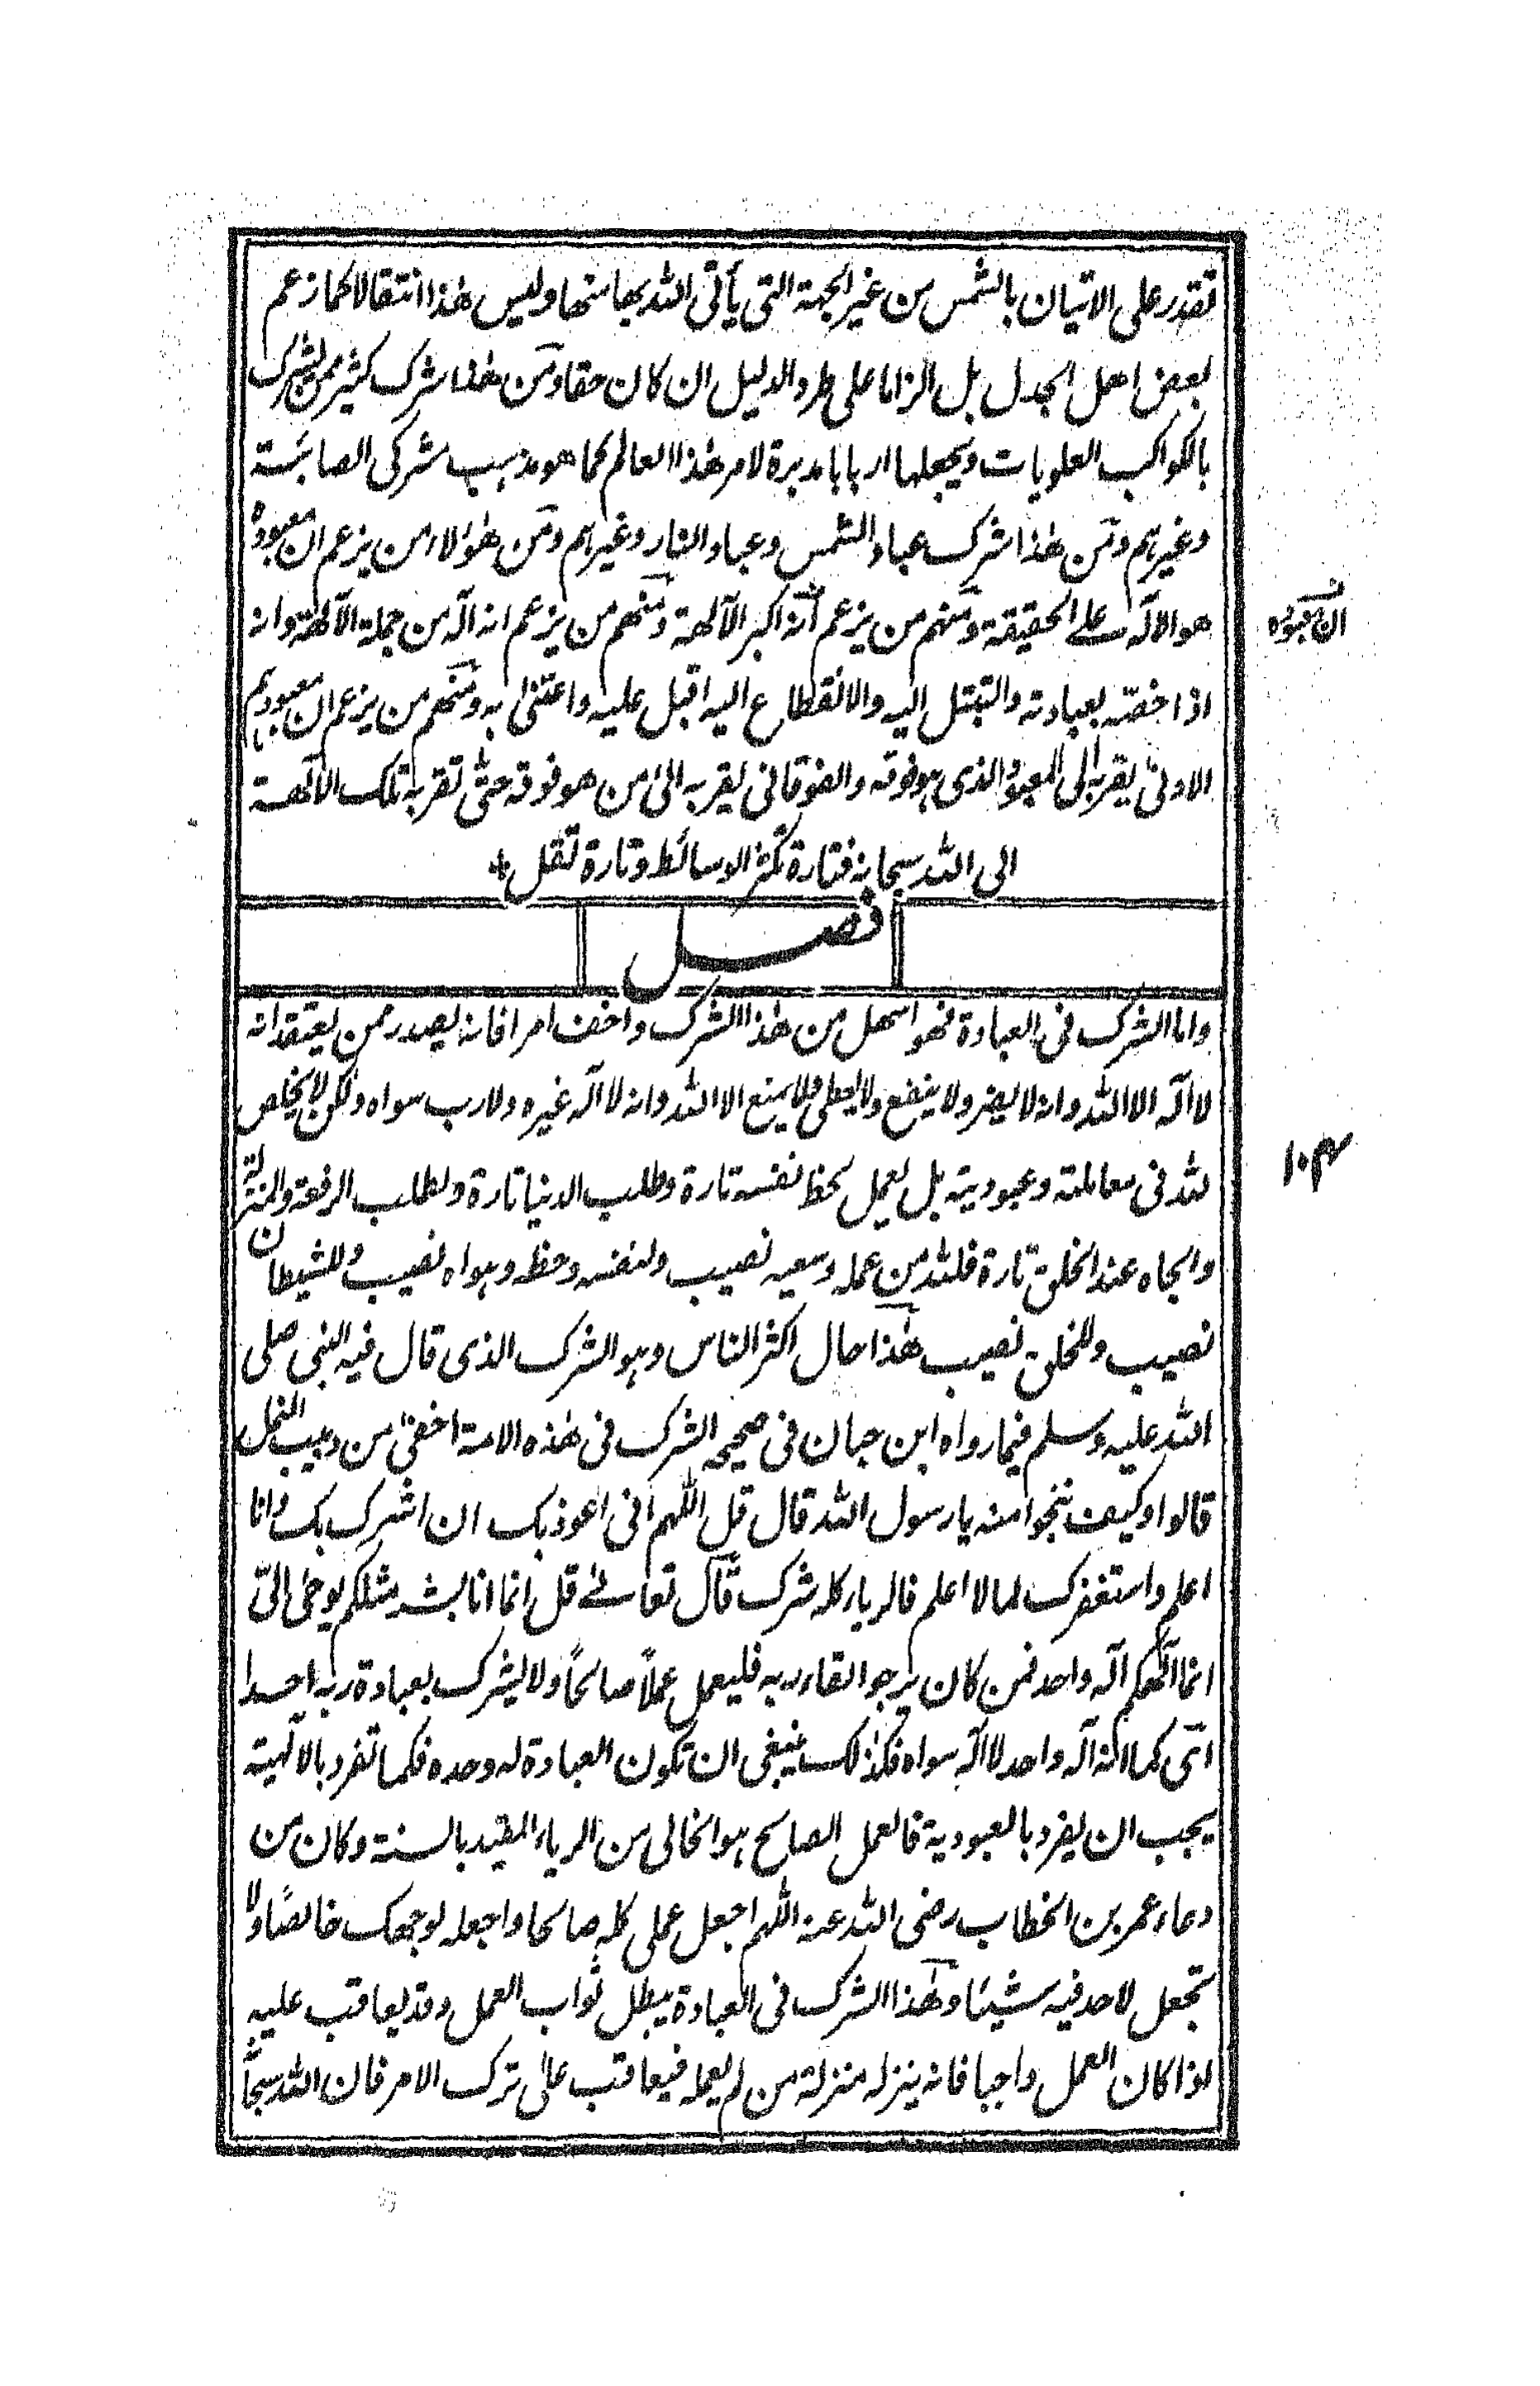 تقدر على الاتيان بالشمس من غير الجهة التى يأتى الله بها منها وليس هذا انتقالا كما زعم
بعض اهل الجدل بل الزاما على طرد الدليل ان كان حقا ومن هذا شرك كثير ممن يشرك
بالكواكب العلويات ويجعلها اربابا مدبرة لامر هذا العالم كما هو مذهب مشركى الصابئة
وغيرهم ومن هذا شرك عباد الشمس وعباد النار وغيرهم ومن هؤلاء من يزعم ان معبوده
هو الاله على الحقيقة ومنهم من يزعم أنه اكبر الآلهة ومنهم من يزعم انه اله من جملة الآلهة وانه
ان معبوده
اذا خصه بعبادته والتبتل اليه والانقطاع اليه اقبل عليه واعتنى به ومنهم من يزعم ان معبودهم
الادنى يقربه الى المعبود الذى هو فوقه والفوقانى يقربه الى من هو فوقه حتى تقربه تلك الآلهة
الى الله سبحانه فتارة تكثر الوسائط وتارة تقل
فصل
واما الشرك فى العبادة فهو اسهل من هذا الشرك واخف امرا فانه يصدر ممن يعتقد انه
لا اله الا الله وانه لا يضر ولا ينفع ولا يعطى ولا يمنع الا الله وانه لا اله غيره ولا رب سواه ولكن لا يخلص
لله فى معاملته وعبوديته بل يعمل لحظ نفسه تارة وطلب الدنيا تارة ولطلب الرفعة والمنزلة
١٠٣
والجاه عند الخلق تارة فلله من عمله وسعيه نصيب ولنفسه وحظه وهواه نصيب وللشيطان
نصيب وللخلق نصيب هذا حال اكثر الناس وهو الشرك الذى قال فيه النبى صلى
الله عليه وسلم فيما رواه ابن حبان فى صحيحه الشرك فى هذه الامة اخفى من دبيب النمل
قالوا وكيف ننجوا منه يا رسول الله قال قل اللهم انى اعوذ بك ان اشرك بك وانا
اعلم واستغفرك لما لا اعلم فالرياء كله شرك قال تعالى قل انما انا بشر مثلكم يوحى الىّ
انما الهكم اله واحد فمن كان يرجوا لقاء ربه فليعمل عملاً صالحاً ولا يشرك بعبادة ربه احدا
اى كما انه اله واحد لا اله سواه فكذلك ينبغى ان تكون العبادة له وحده فكما تفرد بالالهية
يجب ان يفرد بالعبودية فالعمل الصالح هو الخالى من الرياء المقيد بالسنة وكان من
دعاء عمر بن الخطاب رضى الله عنه اللهم اجعل عملى كله صالحا واجعله لوجهك خالصًا ولا
تجعل لاحد فيه شيئا وهذا الشرك فى العبادة يبطل ثواب العمل وقد يعاقب عليه
اذا كان العمل واجبا فانه ينزله منزلة من لم يعمله فيعاقب على ترك الامر فان الله سبحانه